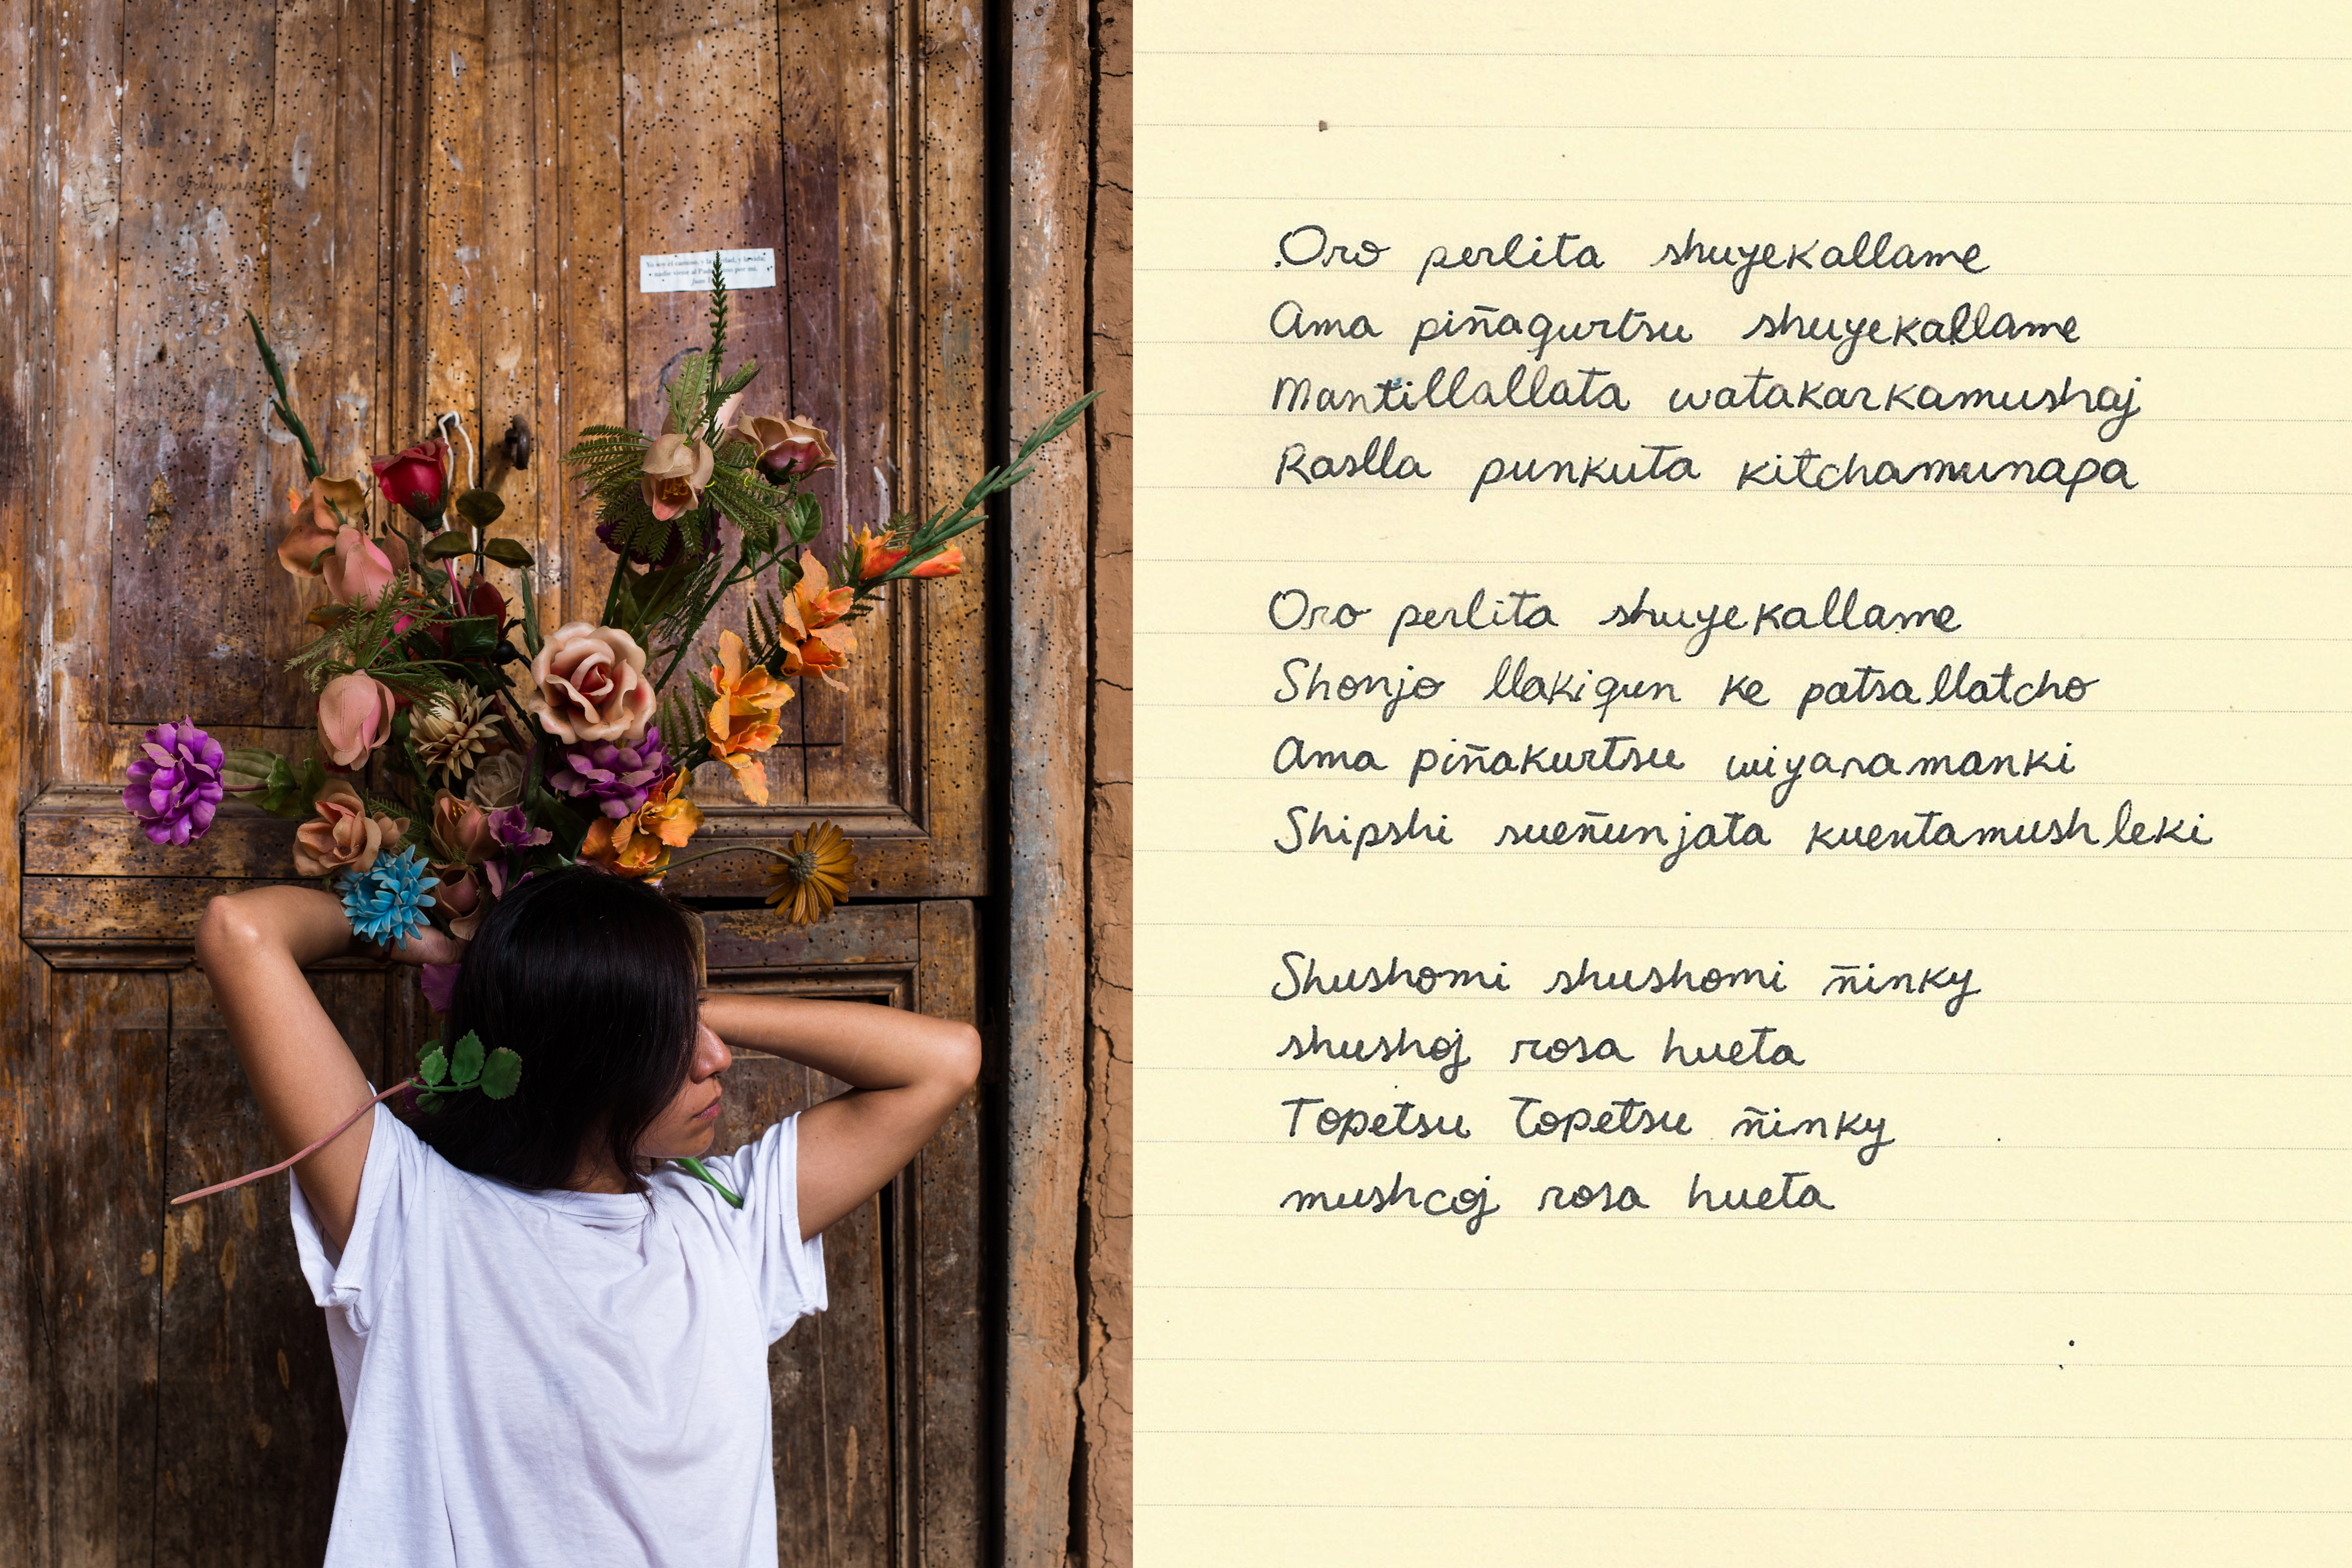 Yo soy el camino, y la verdad, y la vida;
nadie viene al Padre sino por mí.
Juan
Oro perlita shuyekallame
Ama piñagurtsu shuyekallame
Mantillallata watakarkamushaj
Raslla punkuta kitchamunapa
Oro perlita shuyekallame
Shonjo llakiqun ke patsallatcho
Ama piñakurtsu wiyaramanki
Shipshi sueñunjata kuentamushleki
Shushomi shushomi ñinky
shushoj rosa hueta
Topetsu Topetsu ñinky
mushcoj rosa hueta